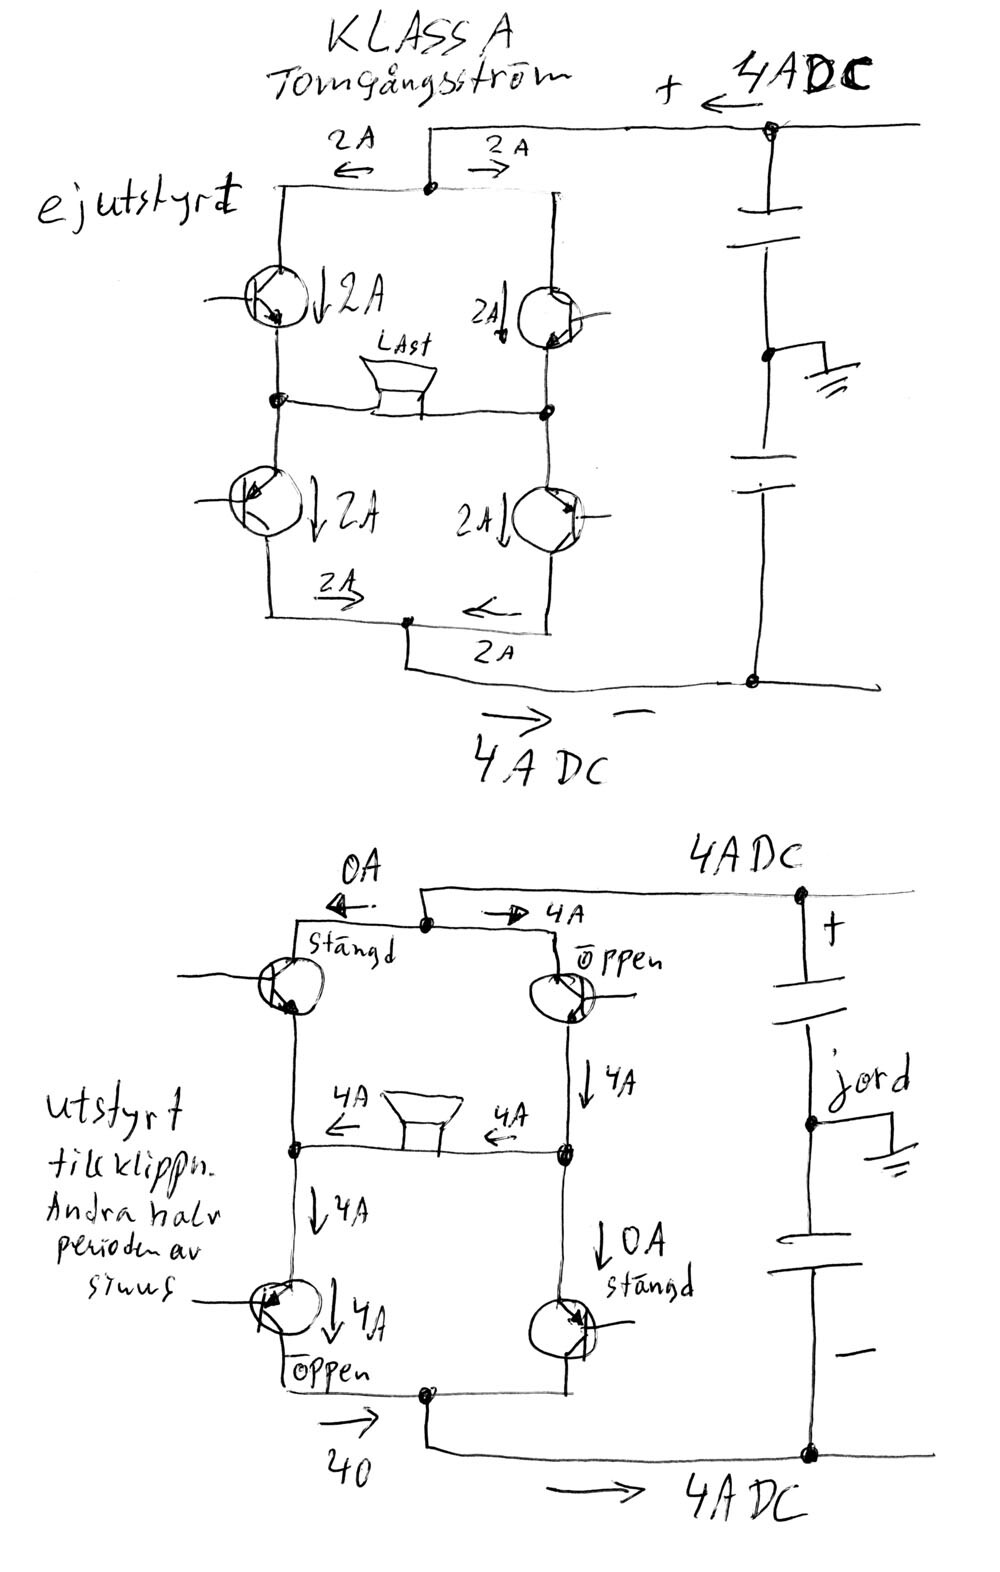 KLASS A
Tomgångsström
+ 4ADC
2A 2A
ej utstyrt
2A
2A
LAst
2A
2A
2A
2A
4A DC
−
4ADC
0A
4A
+
stängd
öppen
4A
jord
4A
4A
utstyrt
till klippn.
Andra halv
perioden av
sinus
4A
0A
stängd
4A
öppen
−
40
4ADC